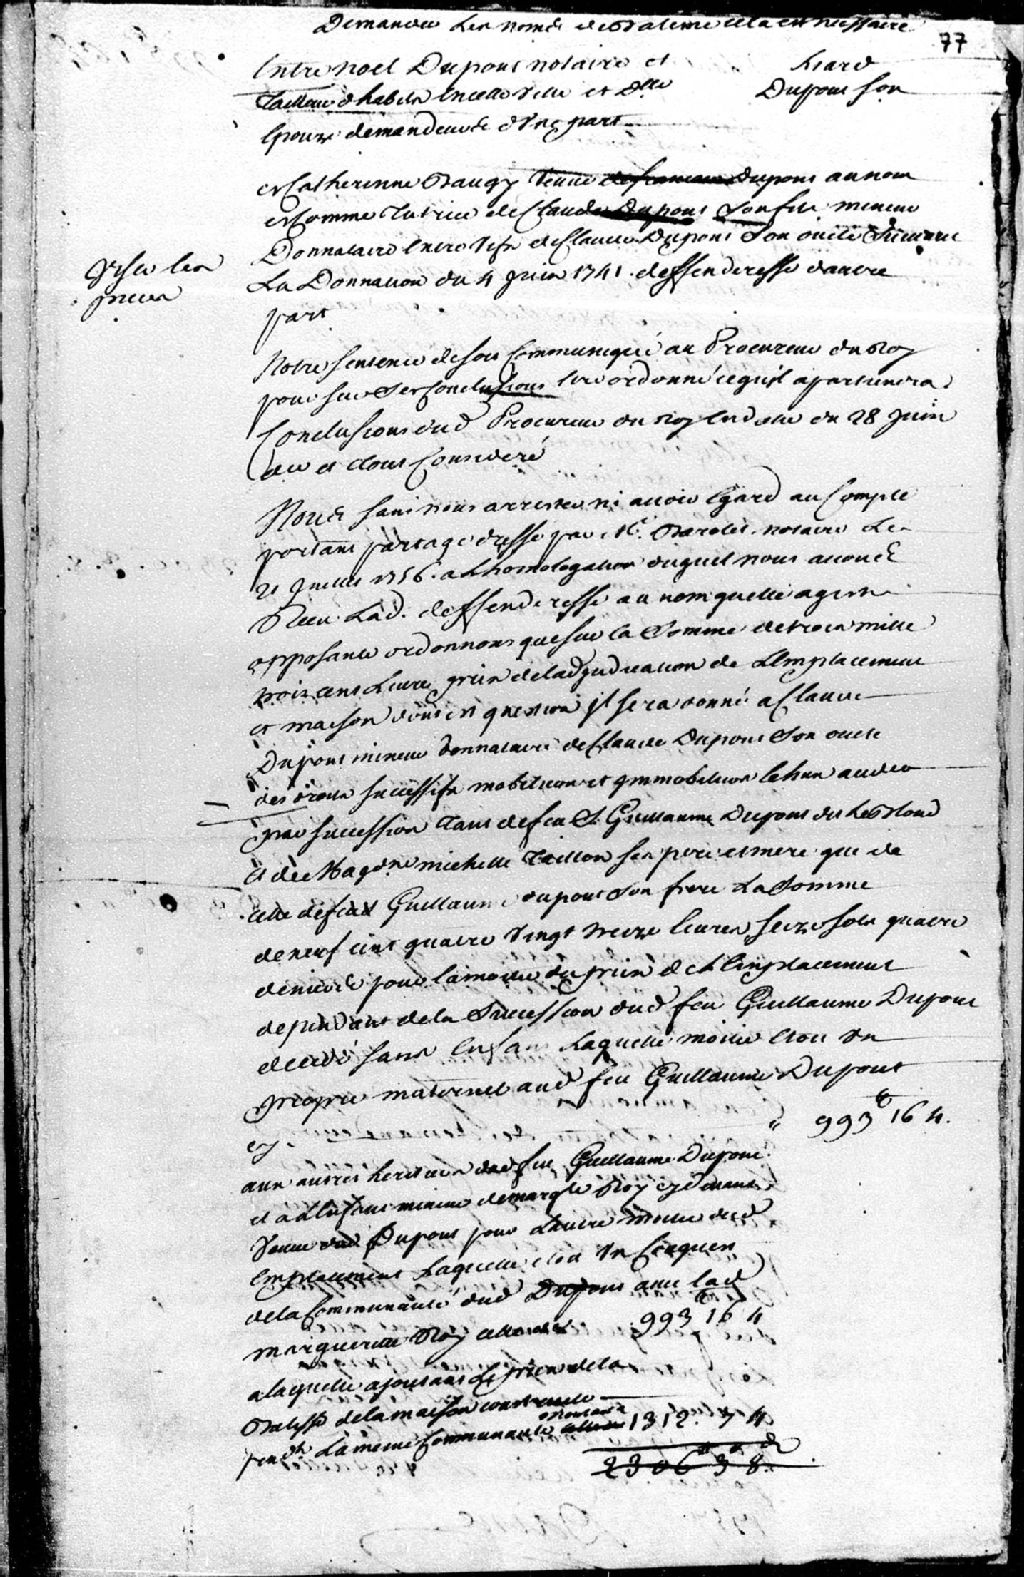 Demander les noms de Bataleme cela est nessaire
77
Entre noel Dupont notaire et
Tailleur d'habits en cette ville et dlle
Dupont son
Epouze demandeurs d'une part
et Catherinne Baugy veuve de francois Dupont au nom
et Comme tutrice de Claude Dupont son fils mineur
Donnataire entre vifs de Claude Dupont son oncle suivant
La Donnation du 4 Juin 1741. deffenderesse d'autre
part
Viser les
pieces
Notre sentence de soit Communiqué au Procureur du Roy
pour sur ses Conclusions être ordonné ce qu'il apartiendra
Conclusions dud Procureur du Roy en datte du 28 Juin
vu et tout Consideré
Nous sans nous arrester ni avoir egard au Compte
portant partage dressé par Me. Barolet notaire Le
21 Juillet 1756. a L'homologation duquel nous avons
Reçu Lad. deffenderesse au nom quelle agist
opposante ordonnons que sur la somme de trois mille
trois cens Livres prix de l'adjudication de L'Emplacement
et maison dont est question il sera donné a Claude
Dupont mineur donnataire de Claude Dupont son oncle
des droits successifs mobiliers et immobiliers echus aud
par succession tant de feu S. Guillaume Dupont dit Leblond
et de Magdne michelle Taillon ses pere et mere que de
celle de feu Guillaume dupont son frere La somme
de neuf cent quatre vingt treize livres seize sols quatre
deniers pour la moitié du prix de cet Emplacement
dependant de la Succession dud feu Guillaume Dupont
decedé sans enfans Laquelle moitié étoit un
propre maternel aud feu Guillaume Dupont
cy 993tt 16 4.
aux autres heritiers dud feu Guillaume Dupont
et a L'enfant mineur de margte Roy cydevant
Veuve dud Dupont pour L'autre moitié dud
Emplacement Laquelle étoit un Conquest
de la Communauté dud Dupont avec lad
marguerite Roy 993tt 16 4
a laquelle ajoutant Le prix de la
Batisse de la maison construite
pendt La meme Communauté montant a 1312. 7 4
2306tt 3s 8d